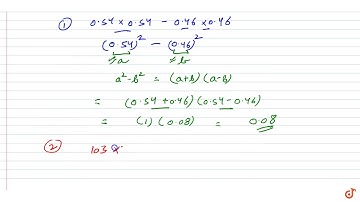 ① 0.54 × 0.54 - 0.46 × 0.46
(0.54)² - (0.46)²
≤a ≤b
a²-b² = (a+b)(a-b)
= (0.54 + 0.46)(0.54 - 0.46)
= (1)(0.08) = 0.08
② 103 ×